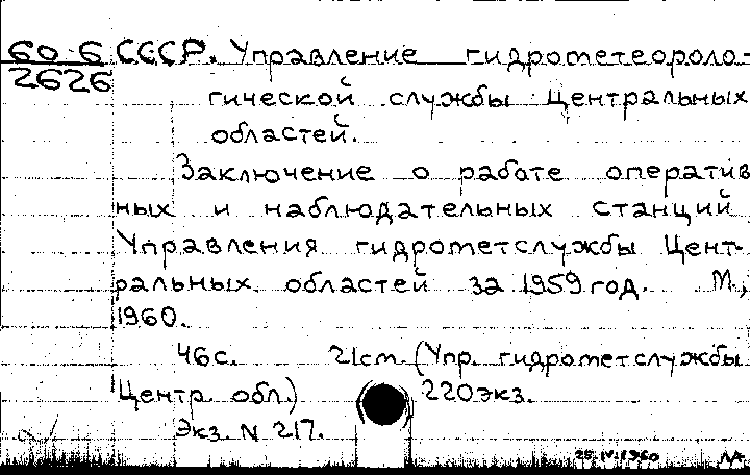 60-6 СССР. Управление гидрометеороло-
2626 гической службы Центральных
областей.
Заключение о работе оператив
ных и наблюдательных станций
Управления гидрометслужбы Цент-
ральных областей за 1959 год. М.,
1960.
46 с. 21 cm. (Упр. гидрометслужбы
Центр. обл.) 220 экз.
Экз. N 217.
25.IV.1960